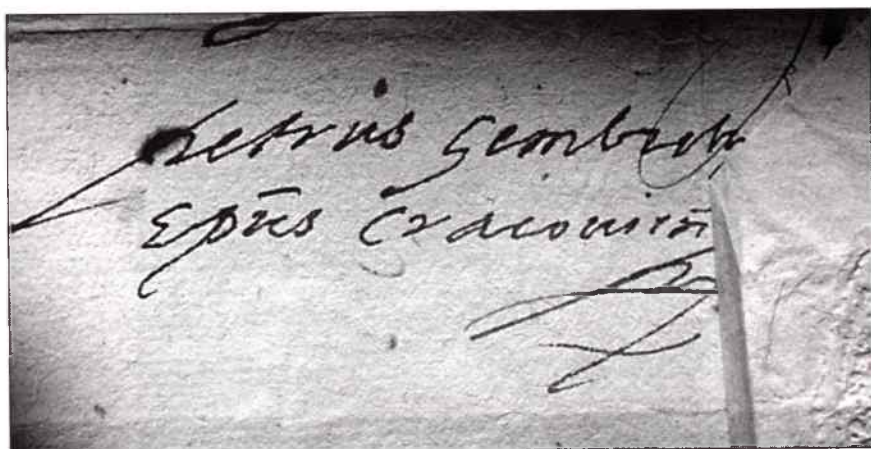 Petrus Gembicki
Epūs Cracouien̄